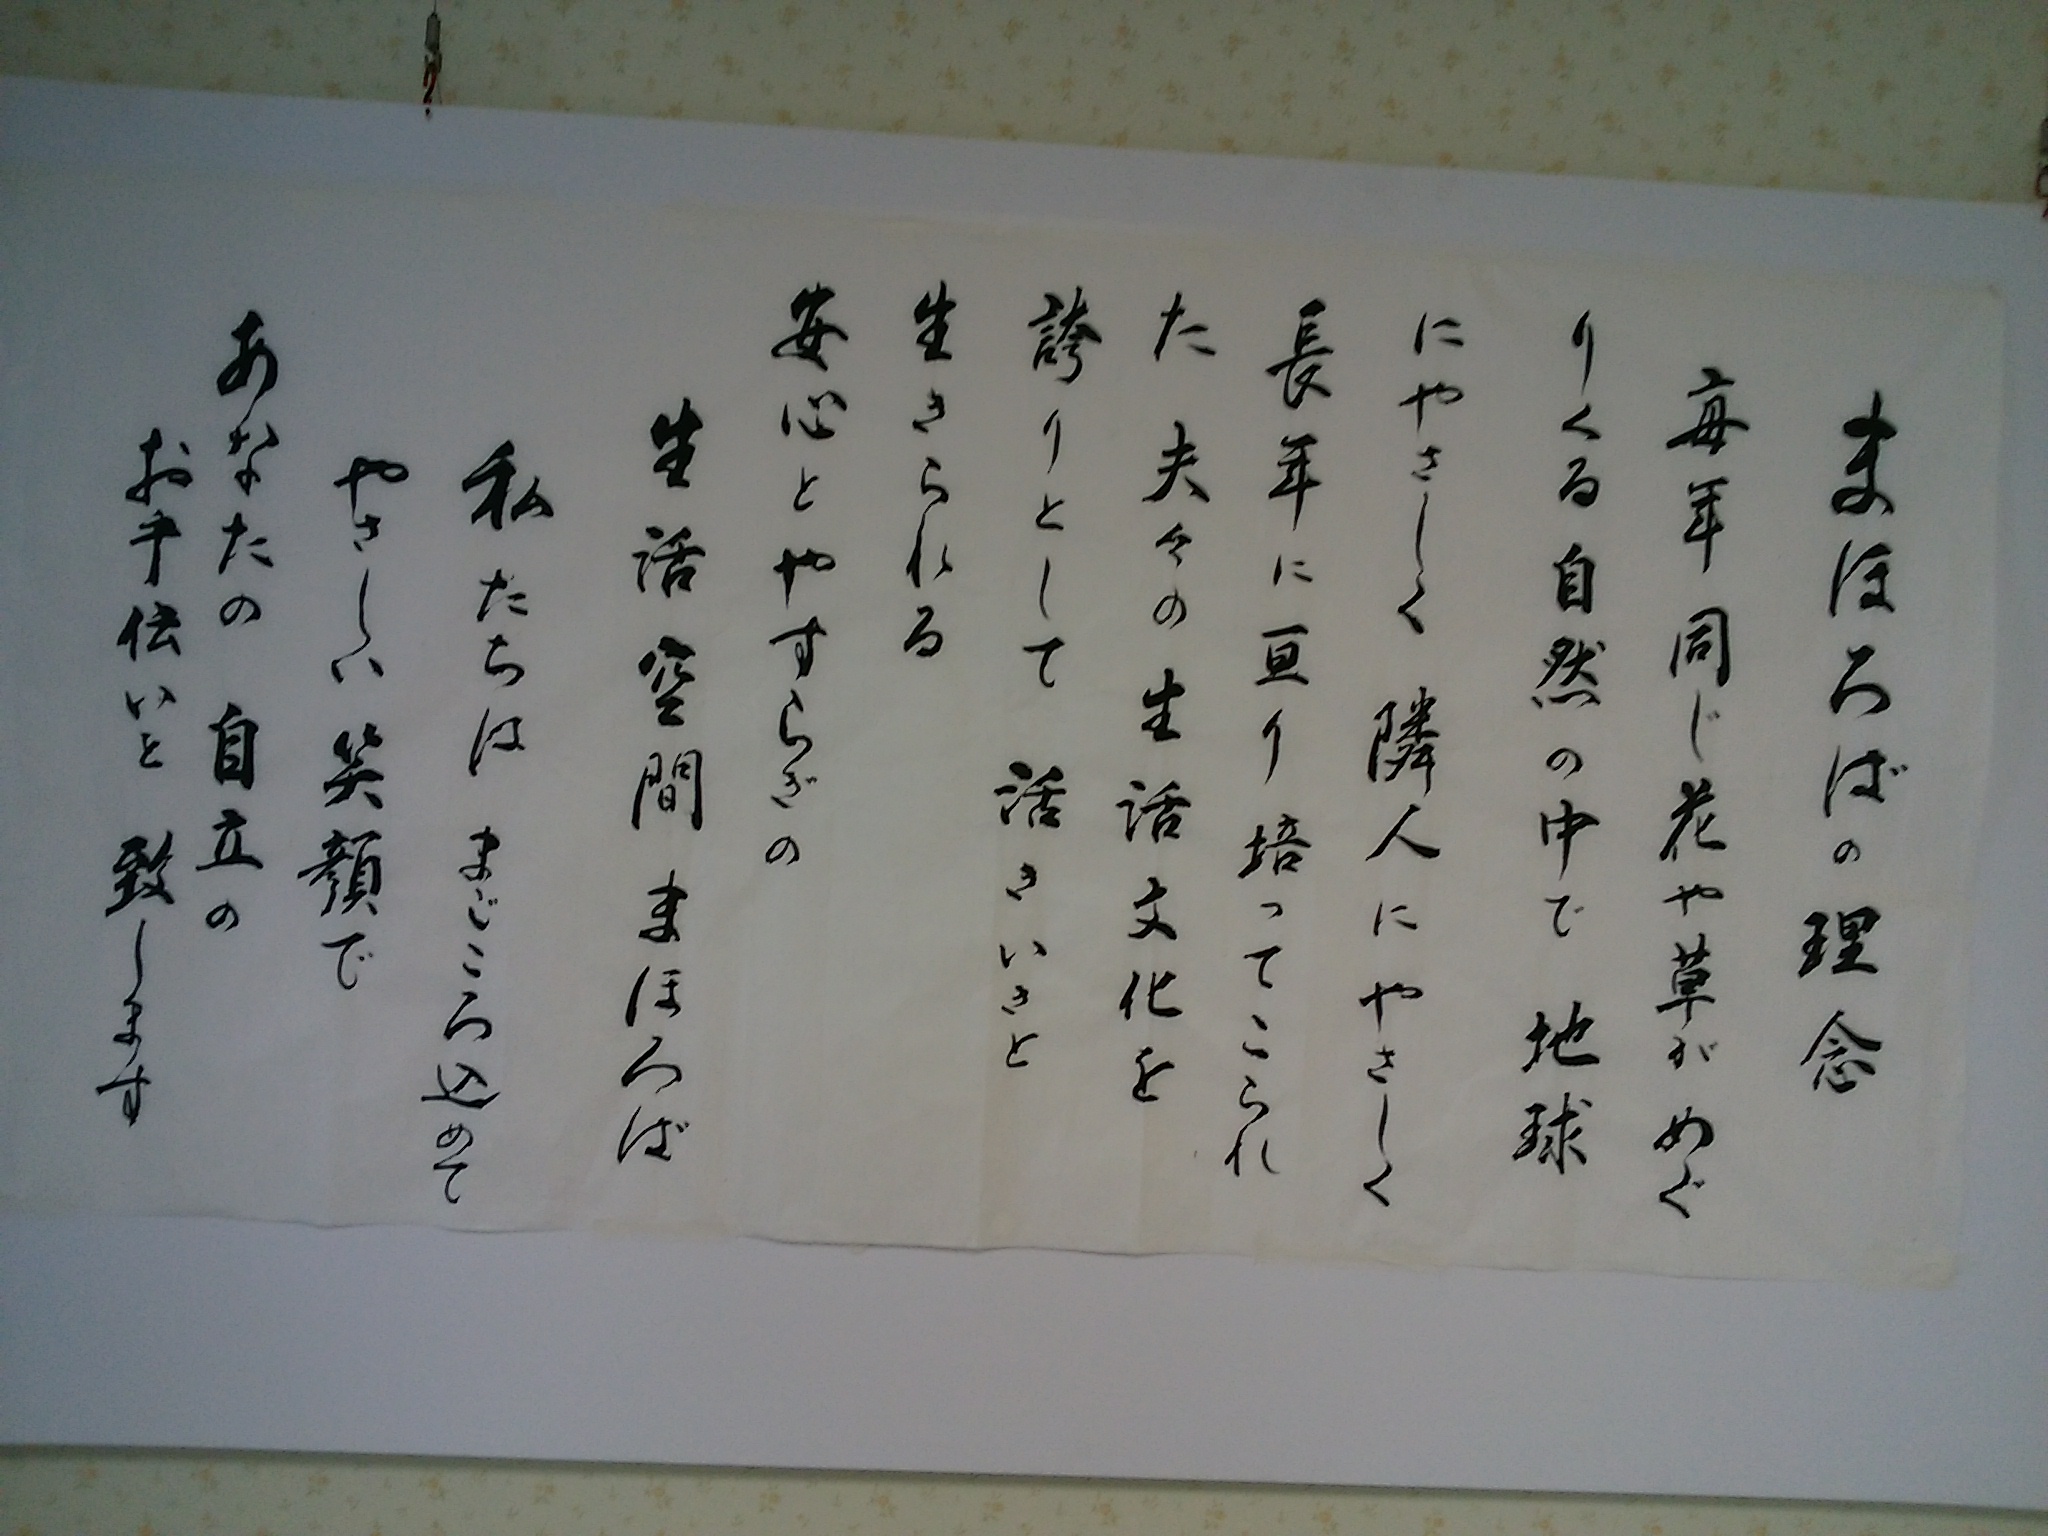 まほろばの理念
毎年同じ花や草がめぐ
りくる自然の中で 地球
にやさしく 隣人にやさしく
長年に亘り培ってこられ
た 夫々の生活文化を
誇りとして 活きいきと
生きられる
安心とやすらぎの
生活空間まほろば
私たちは まごころ込めて
やさしい笑顔で
あなたの 自立の
お手伝いと 致します